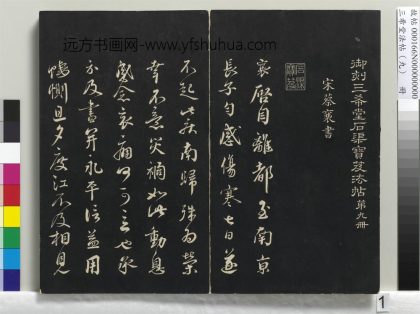 远方书画网-www.yfshuhua.com
故帖 000166N000000000
三希堂法帖(九) 冊
御刻三希堂石渠寶笈法帖第九冊
宋蔡襄書
襄啓自離都至南京
長子勻感傷寒七日遂
不起此疾南歸殊為榮
幸不意災禍如此動息
感念哀痛何可言也承
示及書并永平信益用
悲惻旦夕度江不及相見
1